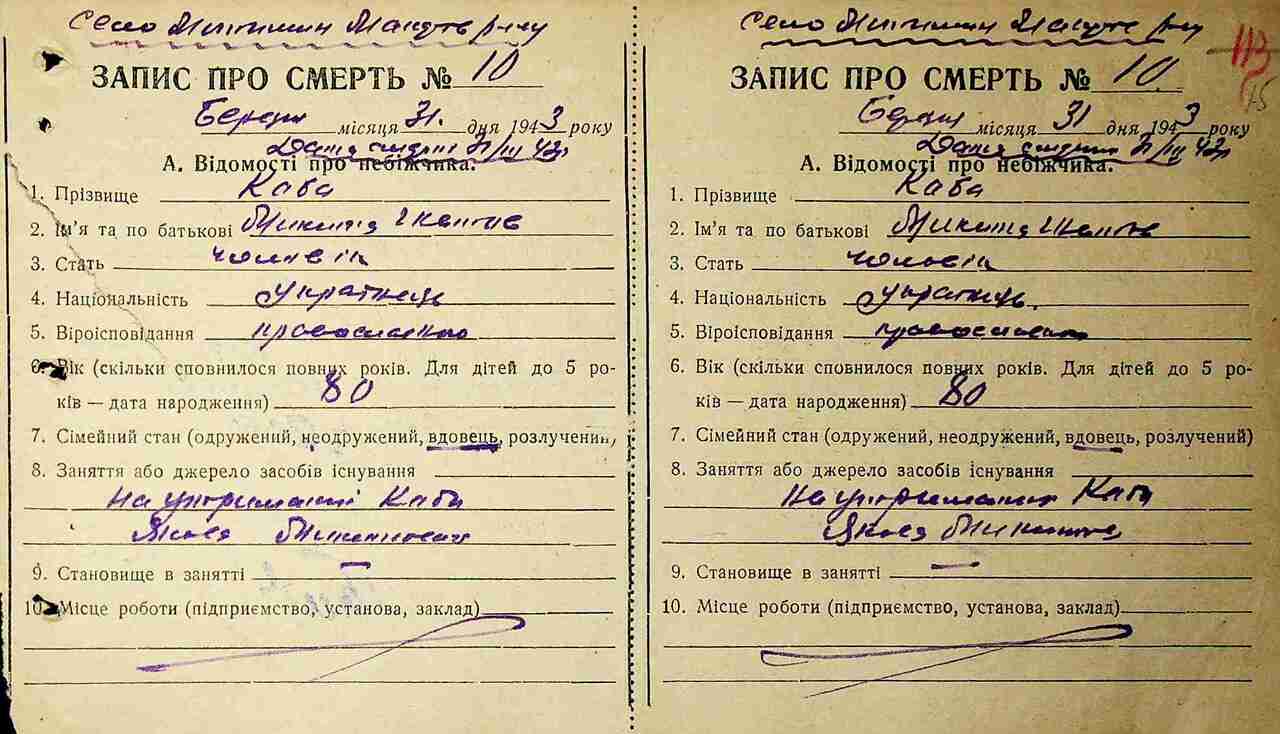 Село
ЗАПИС ПРО СМЕРТЬ № 10
Березня місяця 31. дня 1943 року
Дата смерти 31/III 43р
А. Відомості про небіжчика.
1. Прізвище Каба
2. Ім'я та по батькові Микита
3. Стать чоловік
4. Національність українець
5. Віроісповідання
6. Вік (скільки сповнилося повних років. Для дітей до 5 ро-
ків — дата народження) 80
7. Сімейний стан (одружений, неодружений, вдовець, розлучений)
8. Заняття або джерело засобів існування
На утриманні Каби
Якова
9. Становище в занятті —
10. Місце роботи (підприємство, установа, заклад)
Село
113
ЗАПИС ПРО СМЕРТЬ № 10.
Березня місяця 31 дня 1943 року
Дата смерти 31/III 43р
А. Відомості про небіжчика.
1. Прізвище Каба
2. Ім'я та по батькові Микита
3. Стать чоловік
4. Національність українець.
5. Віроісповідання
6. Вік (скільки сповнилося повних років. Для дітей до 5 ро-
ків — дата народження) 80
7. Сімейний стан (одружений, неодружений, вдовець, розлучений)
8. Заняття або джерело засобів існування
На Каби
Якова
9. Становище в занятті —
10. Місце роботи (підприємство, установа, заклад)